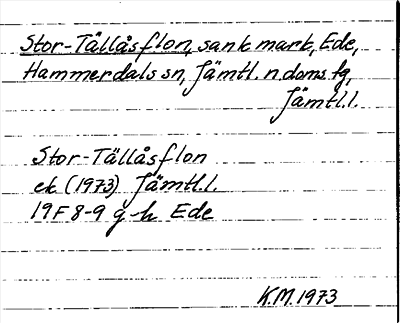 Stor-Tällåsflon, sank mark, Ede,
Hammerdals sn, Jämtl. n. doms. tg,
Jämtl.l.
Stor-Tällåsflon
ek (1973) Jämtl.l.
19F 8-9 g-h Ede
K.M. 1973